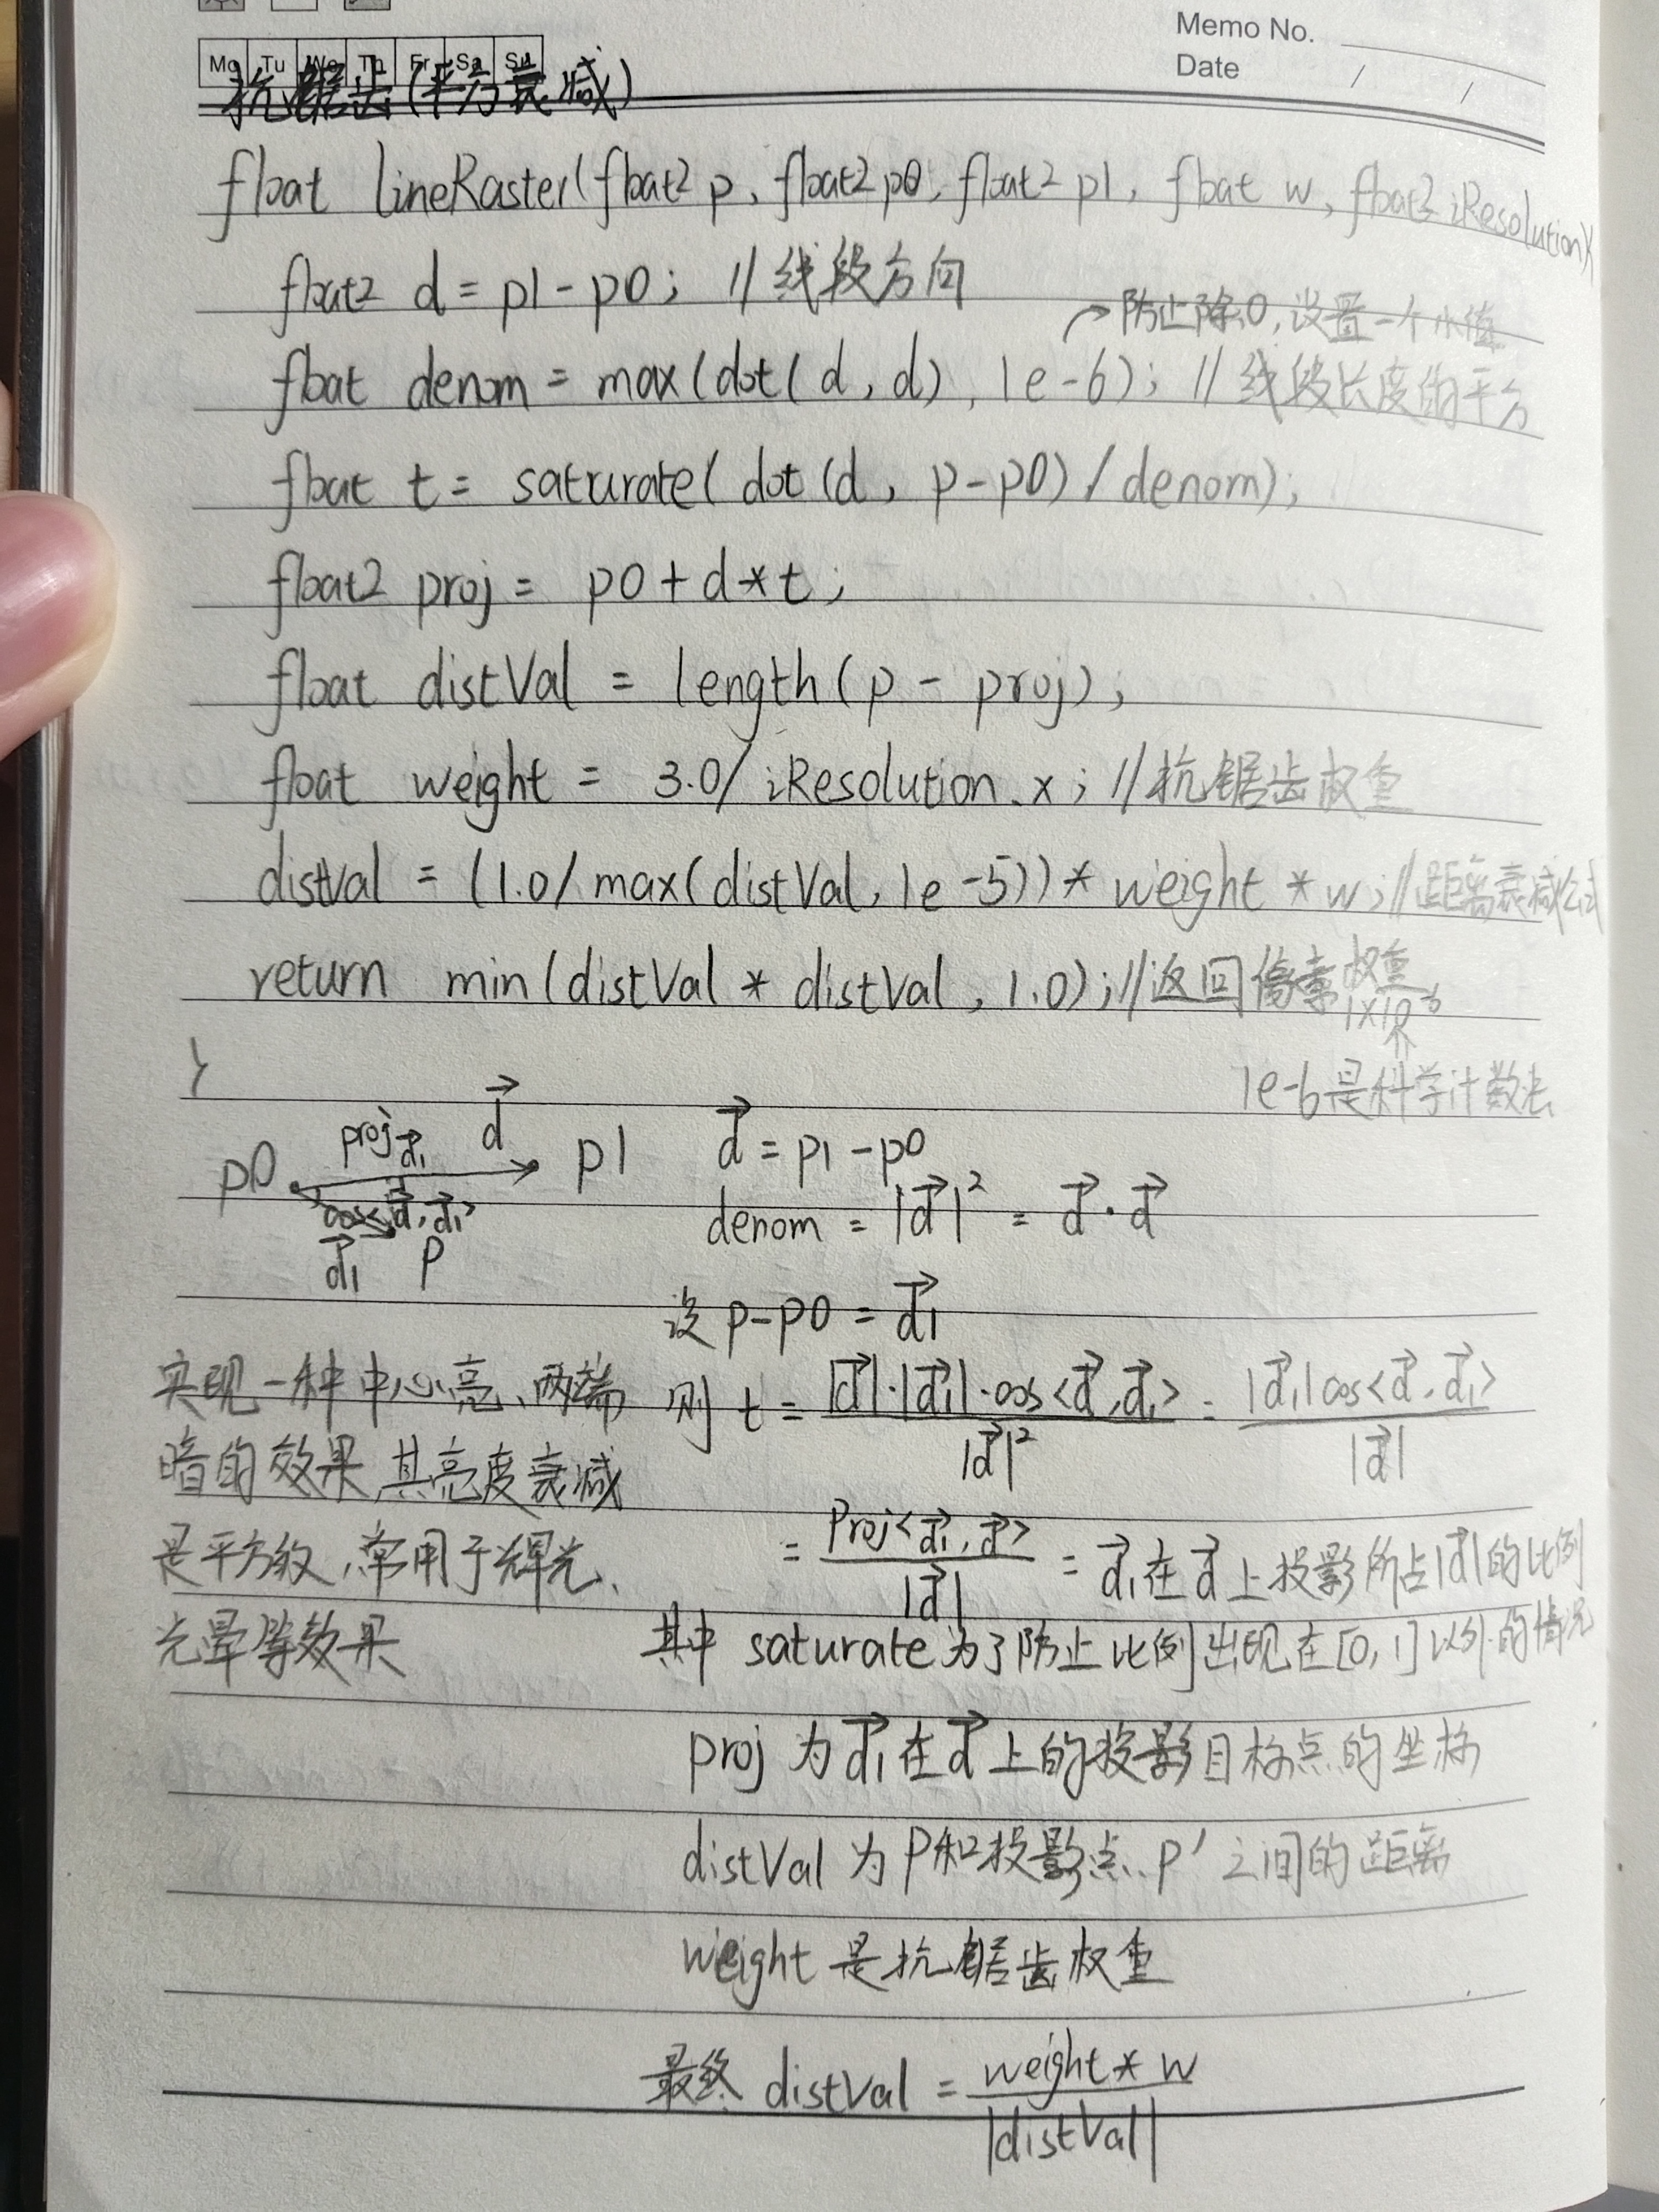 Memo No.
Date / /
Mo Tu We Th Fr Sa Su
抗锯齿(平方衰减)
float lineRaster(float2 p, float2 p0, float2 p1, float w, float3 iResolution){
float2 d = p1 - p0; //线段方向
→防止除0,设置一个小值
float denom = max(dot(d, d), 1e-6); //线段长度的平方
float t = saturate(dot(d, p-p0)/denom);
float2 proj = p0 + d*t;
float distVal = length(p - proj);
float weight = 3.0/iResolution.x; //抗锯齿权重
distVal = (1.0/max(distVal, 1e-5))* weight * w; //距离衰减公式
return min(distVal * distVal, 1.0); //返回像素权重
}
1×10⁻⁶
1e-6是科学计数法
p0 proj d⃗₁ d⃗ p1
cos<d⃗, d⃗₁>
d⃗₁ P
d⃗ = p1 - p0
denom = |d⃗|² = d⃗·d⃗
设 p-p0 = d⃗₁
则 t = |d⃗|·|d⃗₁|·cos<d⃗,d⃗₁> / |d⃗|² = |d⃗₁|cos<d⃗,d⃗₁> / |d⃗|
= Proj<d⃗₁,d⃗> / |d⃗| = d⃗₁在d⃗上投影所占|d⃗|的比例
其中 saturate为了防止比例出现在[0,1]以外的情况
proj 为d⃗₁在d⃗上的投影目标点的坐标
distVal 为P和投影点P′之间的距离
weight 是抗锯齿权重
最终 distVal = weight * w / |distVal|
实现一种中心亮、两端
暗的效果,其亮度衰减
是平方级,常用于辉光、
光晕等效果